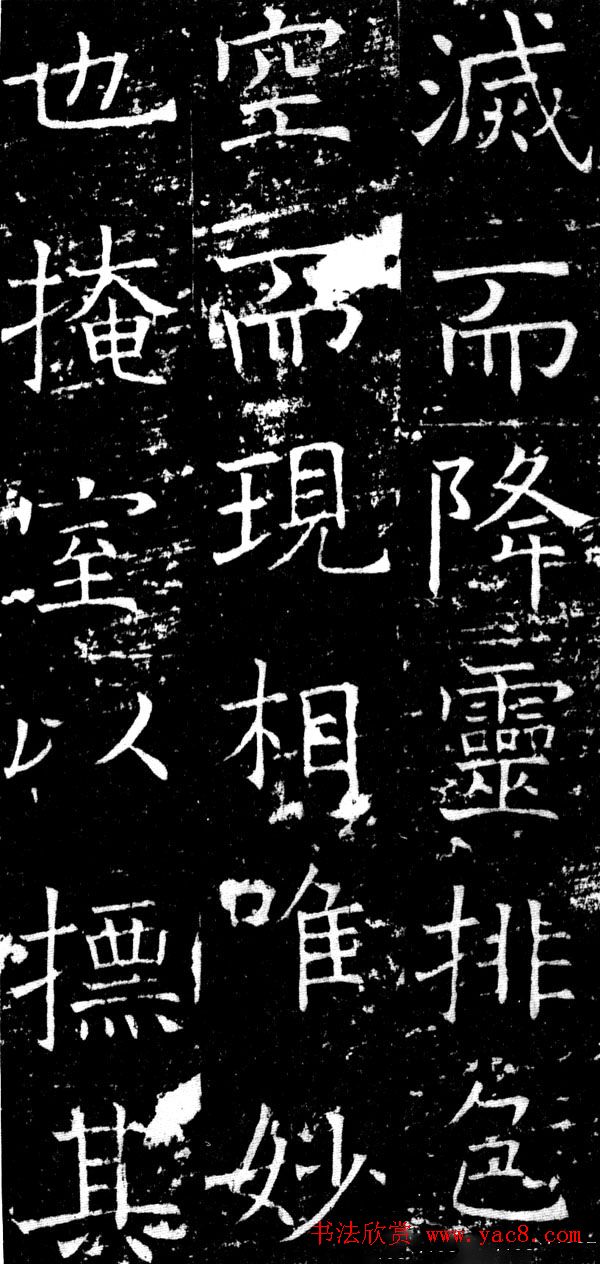 滅而降靈排色
空而現相唯妙
也掩室以摽其
书法欣赏 www.yac8.com